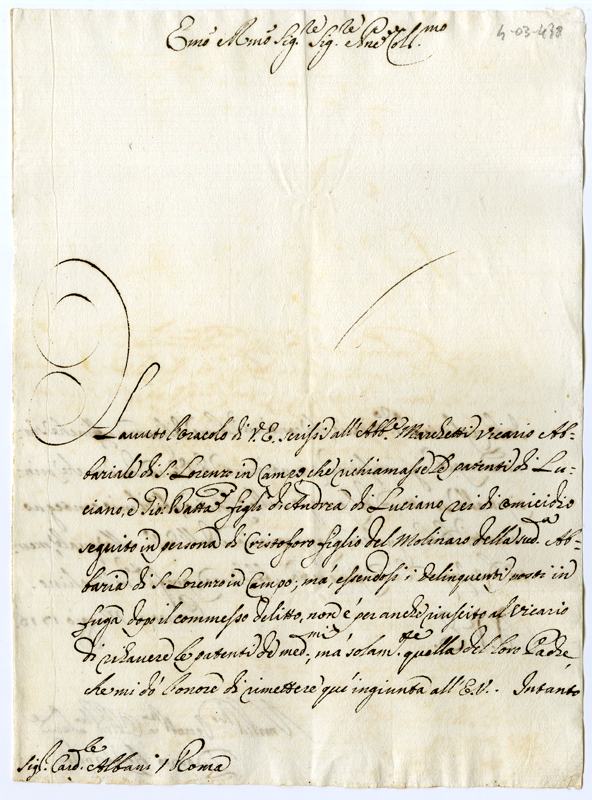 Em̃o e Rm̃o Sig.re Sig.re P̃ne Coll.mo
4-03-438
Havuto l'oracolo di V.E. scrissi all'Abb.e Marchetti Vicario Ab-
baziale di S. Lorenzo in Campo, che richiamasse le patenti di Lu-
ciano, e Gio: Batta figli di Andrea di Luciano rei di omicidio
seguito in persona di Cristoforo figlio del Molinaro della sud.a Ab-
bazia di S. Lorenzo in Campo; mà, essendosi i delinquenti posti in
fuga dopo il commesso delitto, non è per anche riuscito al Vicario
di rihavere le patenti de med.mi, mà solam.te quella del loro Padre
che mi dò l'onore di rimettere quì ingiunta all'E.V. Intanto
Sig.r Card.le Albani / Roma